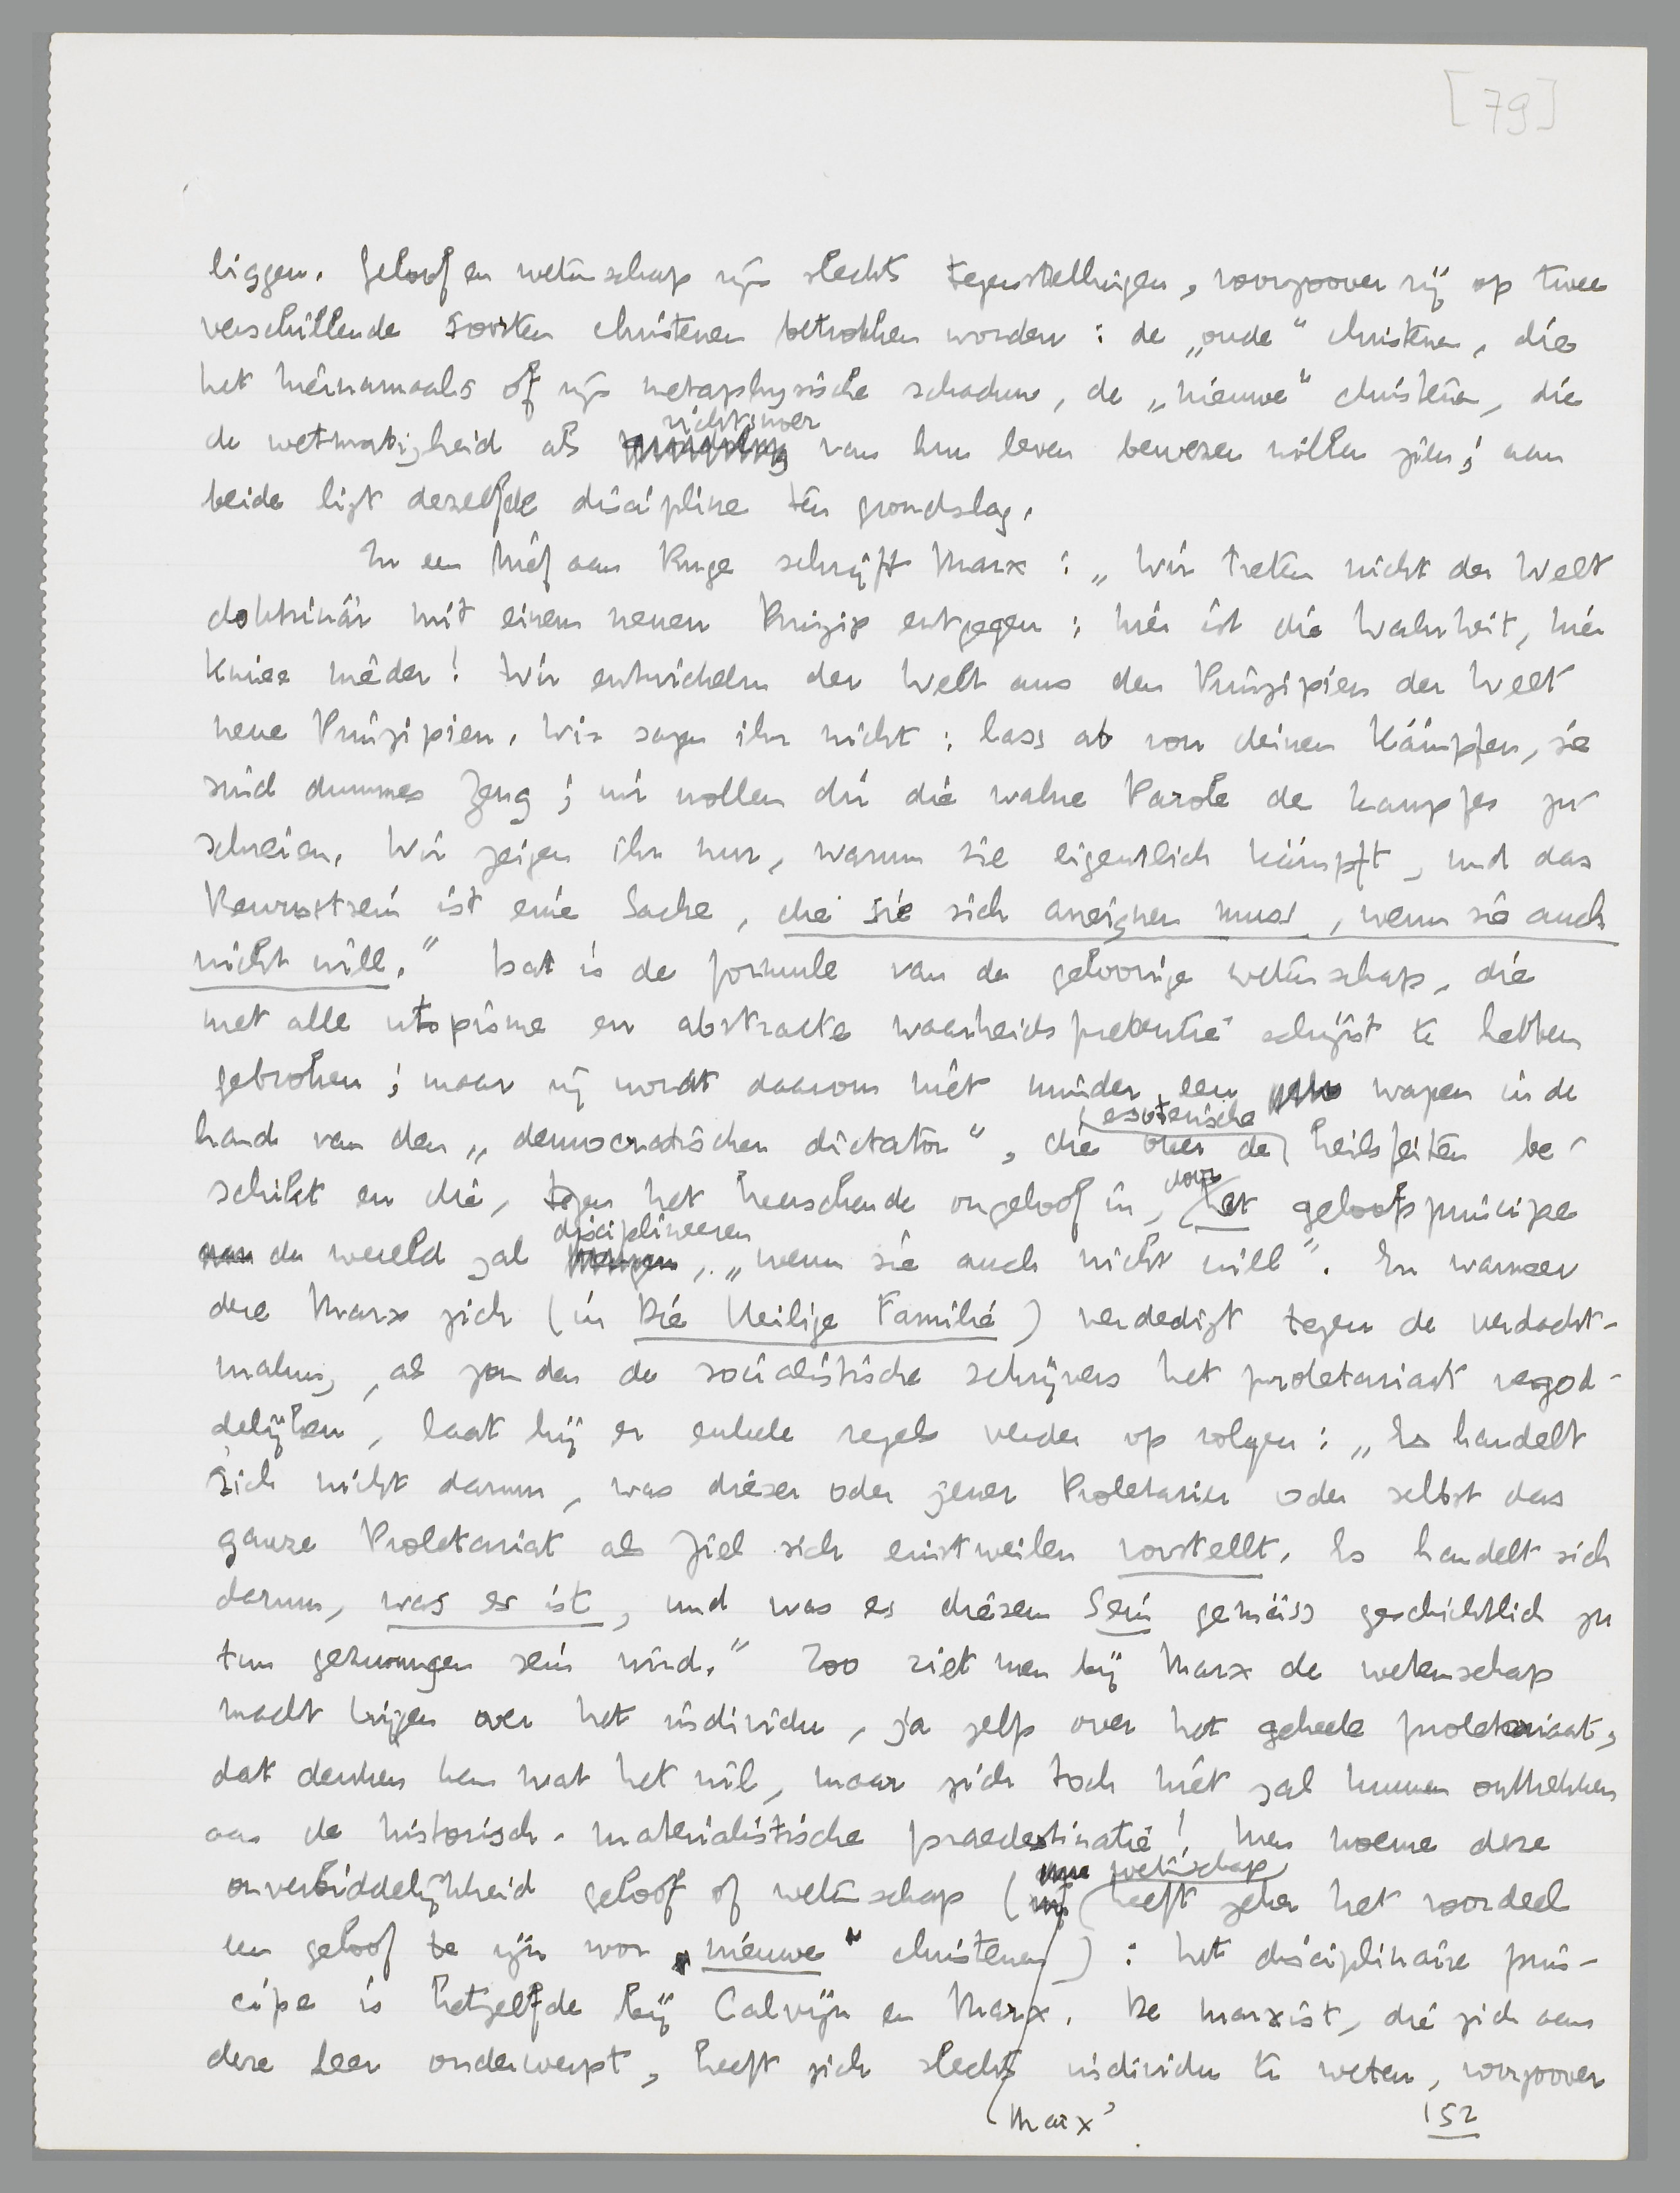 [79]
liggen. Geloof en wetenschap zijn slechts tegenstellingen, voorzoover zij op twee
verschillende soorten christenen betrokken worden: de „oude" christenen, die
het hiernamaals of zijn metaphysische schaduw, de „nieuwe" christenen, die
richtsnoer
de wetmatigheid als van hun leven bewezen willen zien; aan
beide ligt dezelfde discipline ten grondslag.
In een brief aan Ruge schrijft Marx: „Wir treten nicht der Welt
doktrinär mit einem neuen Prinzip entgegen: hier ist die Wahrheit, hier
kniee nieder! Wir entwickeln der Welt aus den Prinzipien der Welt
neue Prinzipien. Wir sagen ihr nicht: lass ab von deinen Kämpfen, sie
sind dummes Zeug; wir wollen dir die wahre Parole des Kampfes zu-
schreien. Wir zeigen ihr nur, warum sie eigentlich kämpft, und das
Bewusstsein ist eine Sache, die sie sich aneignen muss, wenn sie auch
nicht will." Dat is de formule van de geloovige wetenschap, die
met alle utopisme en abstracte waarheidspretentie schijnt te hebben
gebroken; maar zij wordt daarom niet minder een wapen in de
esoterische
hand van den „democratischen dictator", die over de heilsfeiten be-
schikt en die, tegen het heerschende ongeloof in, het geloofsprincipe
voor
disciplineeren
de wereld zal , „wenn sie auch nicht will". En wanneer
deze Marx zich (in Die Heilige Familie) verdedigt tegen de verdacht-
making, als zouden de socialistische schrijvers het proletariaat vergod-
delijken, laat hij er enkele regels verder op volgen: „Es handelt
sich nicht darum, was dieser oder jener Proletarier oder selbst das
ganze Proletariat als Ziel sich einstweilen vorstellt. Es handelt sich
darum, was es ist, und was es diesem Sein gemäss geschichtlich zu
tun gezwungen sein wird." Zoo ziet men bij Marx de wetenschap
macht krijgen over het individu, ja zelfs over het geheele proletariaat,
dat denken kan wat het wil, maar zich toch niet zal kunnen onttrekken
aan de historisch-materialistische praedestinatie! Men noeme deze
wetenschap
onverbiddelijkheid geloof of wetenschap ( heeft zeker het voordeel
een geloof te zijn voor „nieuwe" christenen): het disciplinaire prin-
cipe is hetzelfde bij Calvijn en Marx. De marxist, die zich aan
deze leer onderwerpt, heeft zich slechts individu te weten, voorzoover
Marx'
152